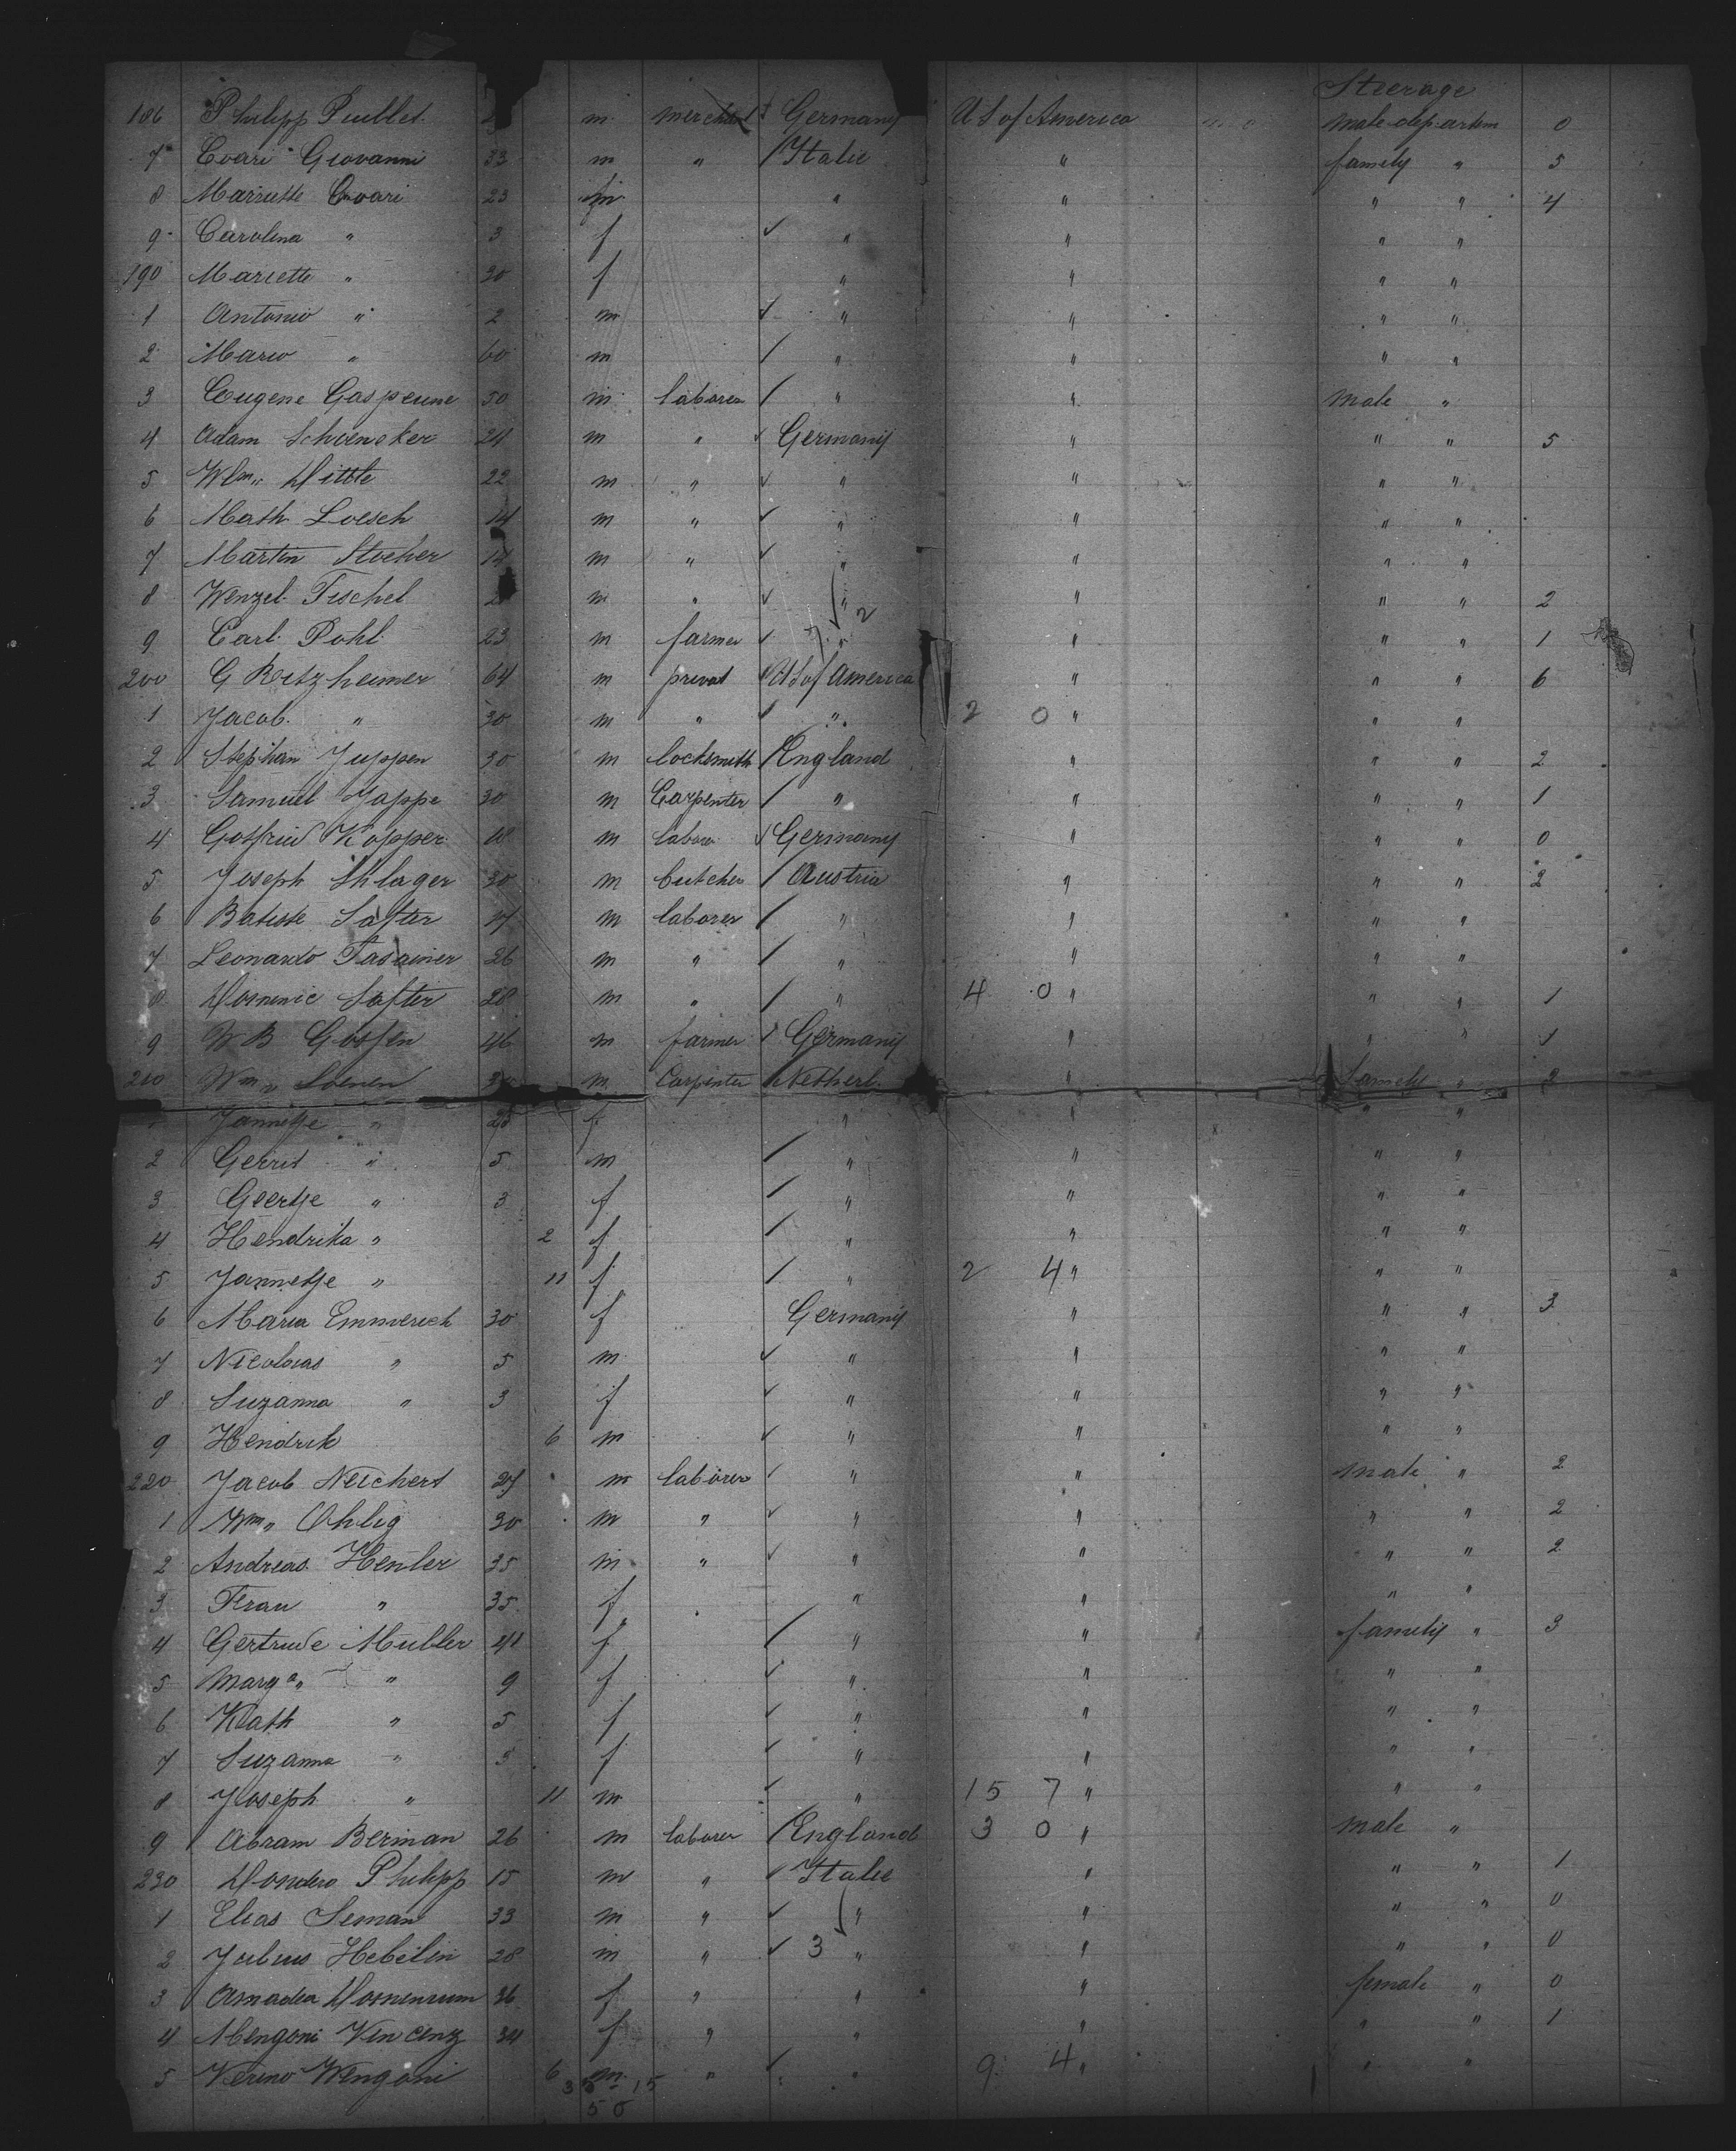 Steerage
186 Philipp Puillet m merchant Germany U S of America male departm 0
7 Coari Giovanni 33 m " Italie " family " 5
8 Marriette Coari 23 " " " " 4
9 Carolina " 3 f " " " "
190 Mariette " 30 f " " " "
1 Antonio " 2 m " " " "
2 Mario " 60 m " " " "
3 Eugene Gaspeune 50 m laborer " " male "
4 Adam Schoeneker 24 m " Germany " " " 5
5 Wlm" Little 22 m " " " " "
6 Math Loesch 14 m " " " " "
7 Martin Stocher 14 m " " " " "
8 Wenzel Tischel m " " " " " 2
2
9 Carl Pohl 23 m farmer " " " " 1
200 G Retzheimer 64 m privat U S of America " " " 6
1 Jacob " 30 m " " 2 0 " " "
2 Stephan Juppen 30 m locksmith England " " " 2
3 Samuel Jappe 30 m Carpenter " " " " 1
4 Gotfried Kopper 18 m labour Germany " " " 0
5 Joseph Shlager 30 m butcher Austria " " " 2
6 Batiste Safter m laborer " " " "
7 Leonardo Tasainer 26 m " " " " "
8 Domenic Safter 28 m " " 4 0 " " " 1
9 W B Gossen 46 m farmer Germany " " " 1
210 Wm" Loenen m Carpenter Netherl. " family " 3
Jannetje " 25 f " " " "
2 Gerrit " 5 m " " " "
3 Geertje " 3 f " " " "
4 Hendrika " 2 f " " " "
5 Jannetje " 11 f " 2 4 " " "
6 Maria Emmerich 30 f Germany " " " 3
7 Nicolaas " 5 m " " " "
8 Suzanna " 3 f " " " "
9 Hendrik 6 m " " " "
220 Jacob Neichert 27 m laborer " " male " 2
1 Wm" Ohlig 30 m " " " " " 2
2 Andreas Henler 35 m " " " " " 2
3 Frau " 35 f " " " "
4 Gertrude Muller 41 f " " family " 3
5 Marga" " 9 f " " " "
6 Kath " 5 f " " " "
7 Suzanna " 3 f " " " "
8 Joseph " 11 m " 15 7 " " "
9 Abram Berman 26 m laborer England 3 0 " male "
230 Dondero Philipp 15 m " Italie " " " 1
1 Elias Seman 33 m " " " " " 0
2 Julius Hebelin 28 m " 3 " " " " 0
3 Amadea Domenium 36 f " " " female " 0
4 Mengoni Vincenz 34 f " " " " " 1
5 Verino Wengoni 6 m " " 9 4 " " "
3 5 15
50